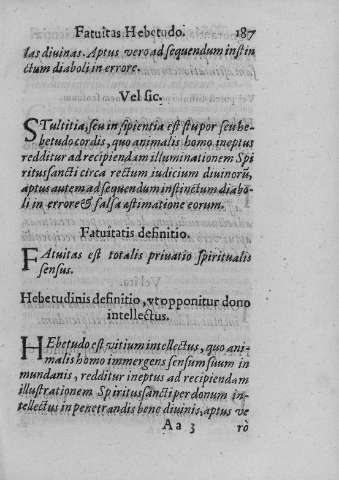 Fatuitas Hebetudo. 187
las divinas. Aptus vero ad sequendum instin
ctum diaboli in errore.
Vel sic.
STultitia, seu insipientia est stupor seu he-
betudo cordis, quo animalis homo ineptus
redditur ad recipiendam illuminationem Spi
ritus sancti circa rectum iudicium divinorũ,
aptus autem ad sequendum instinctum diabo-
li in errore & falsa æstimatione eorum.
Fatuitatis definitio.
FAtuitas est totalis privatio spiritualis
sensus.
Hebetudinis definitio, vt opponitur dono
intellectus.
HEbetudo est vitium intellectus, quo ani-
malis homo immergens sensum suum in
mundanis, redditur ineptus ad recipiendam
illustrationem Spiritus sancti per donum in-
tellectus in penetrandis bene divinis, aptus ve
Aa 3 rò